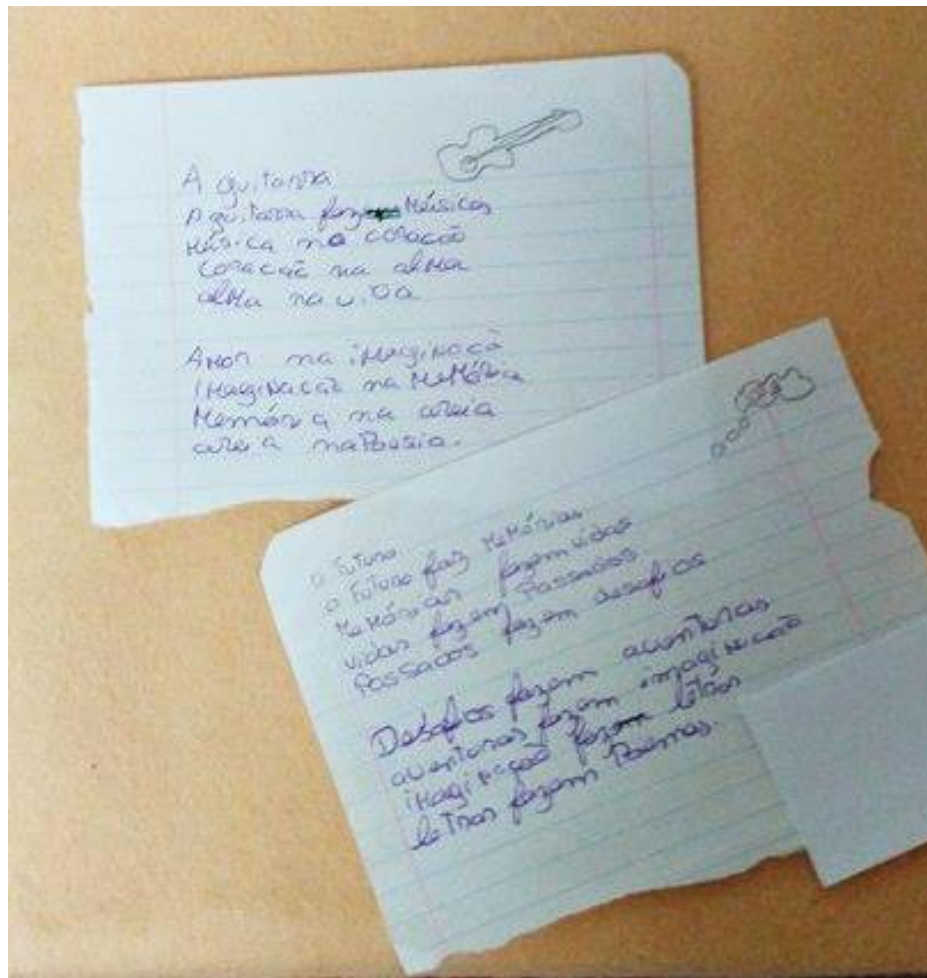 A guitarra
A guitarra faz Músicas
Música no coração
coração na alma
alma na vida
Amor na imaginação
imaginação na Memória
Memória na areia
areia na Poesia.
O Futuro
O Futuro faz Memórias
Memórias fazem vidas
vidas fazem Passados
Passados fazem desafios
Desafios fazem aventuras
aventuras fazem imaginação
imaginação fazem letras
letras fazem Poemas.